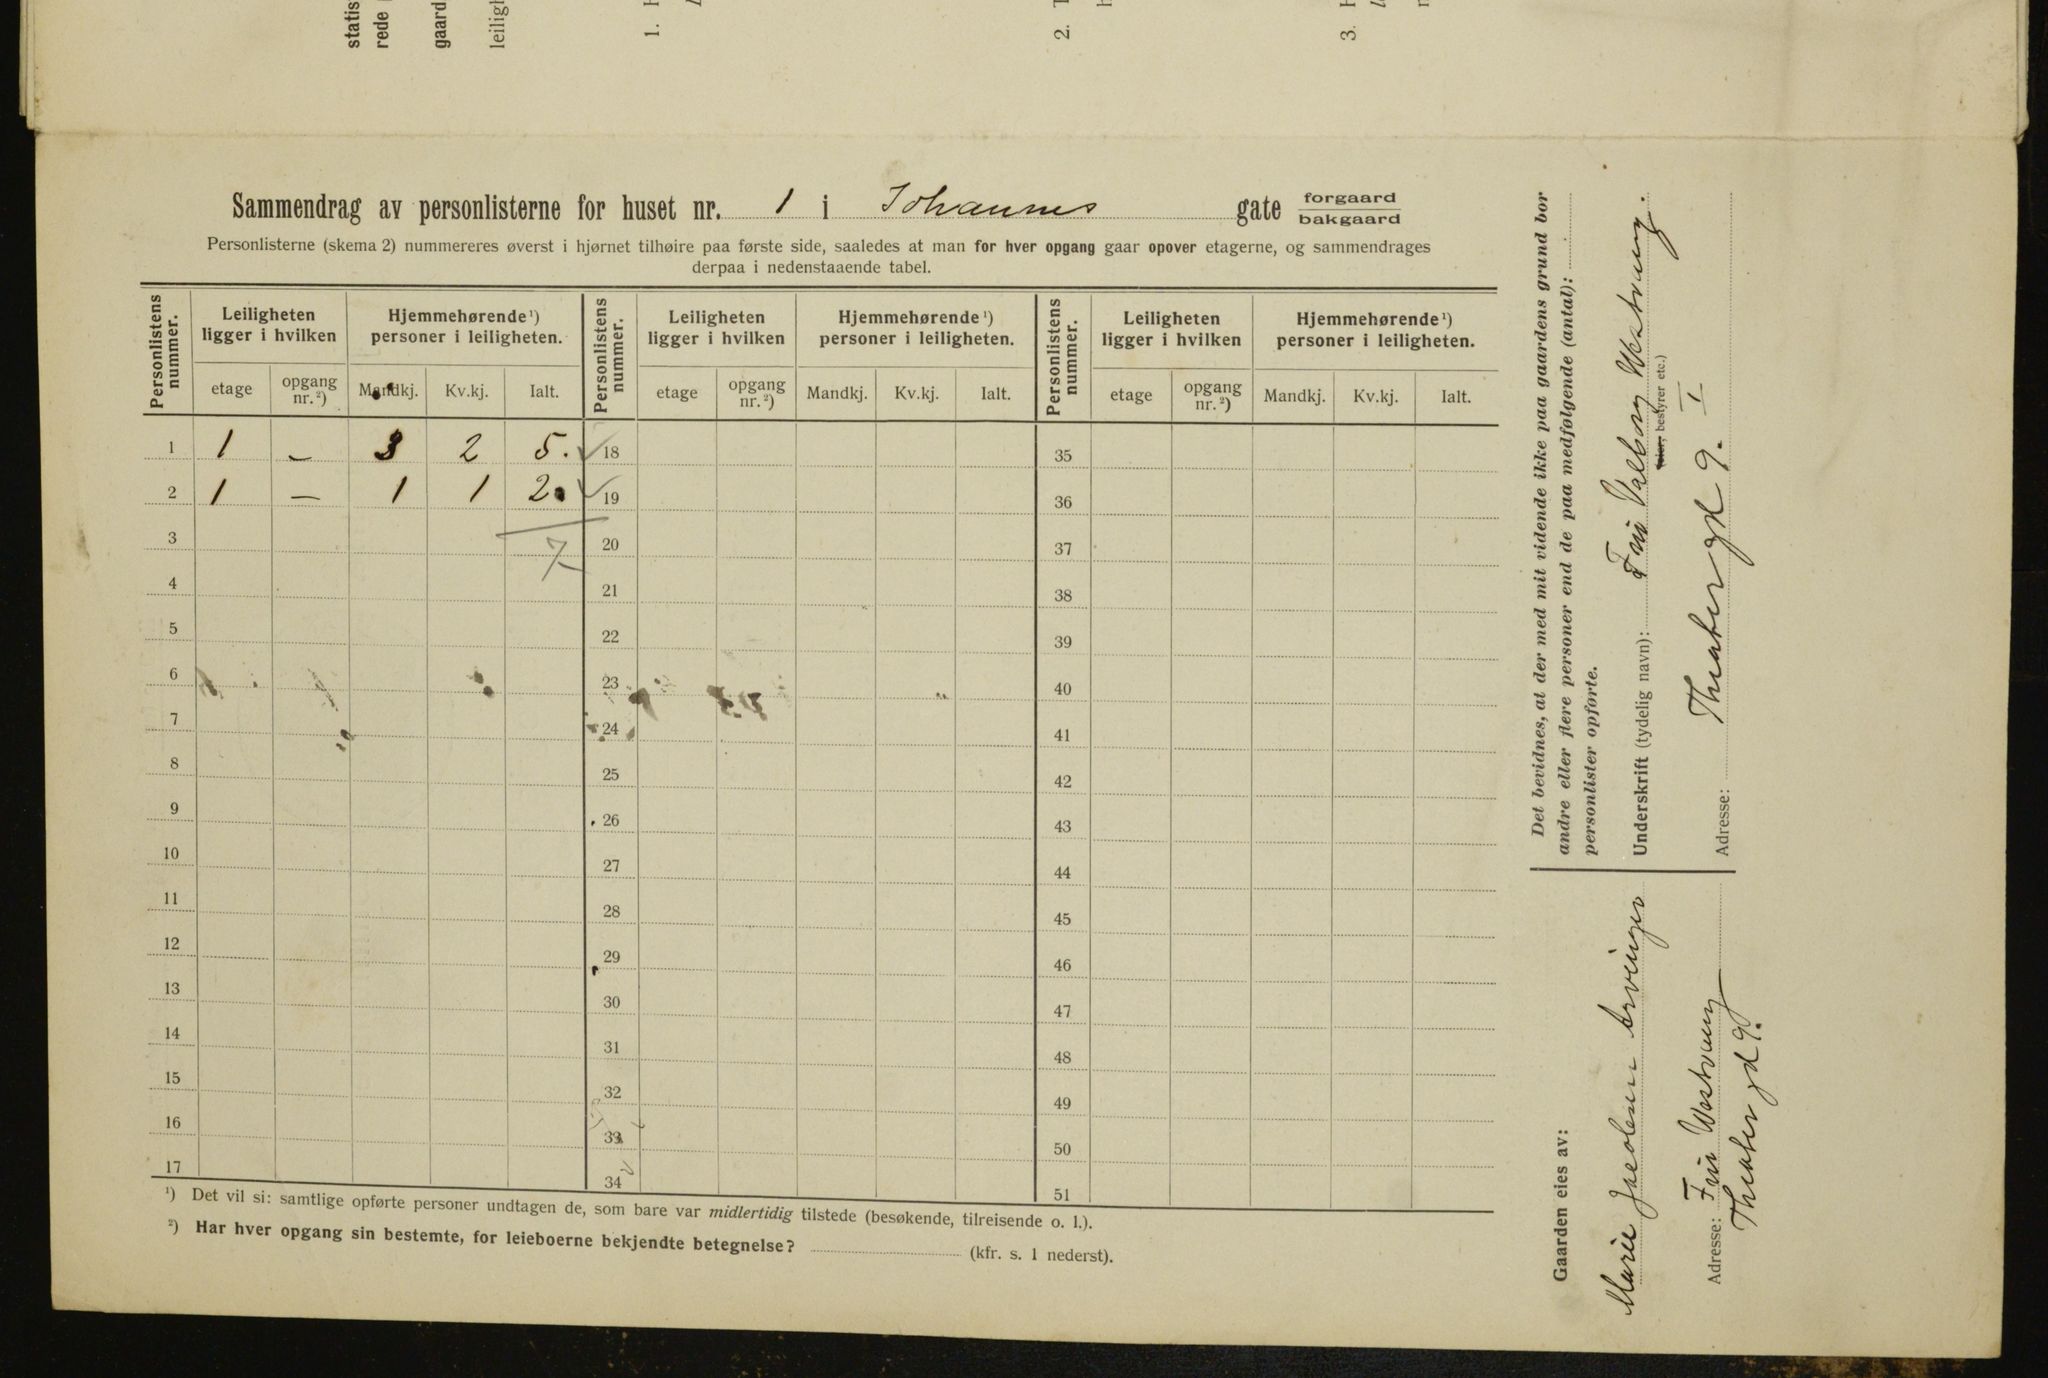 statis
rede
gaard
leiligh
1.
2.
3.
Sammendrag av personlisterne for huset nr. 1 i Johannes gate forgaard
bakgaard
Personlisterne (skema 2) nummereres øverst i hjørnet tilhøire paa første side, saaledes at man for hver opgang gaar opover etagerne, og sammendrages
derpaa i nedenstaaende tabel.
Personlistens nummer. Leiligheten ligger i hvilken Hjemmehørende ¹) personer i leiligheten. Personlistens nummer. Leiligheten ligger i hvilken Hjemmehørende ¹) personer i leiligheten. Personlistens nummer. Leiligheten ligger i hvilken Hjemmehørende ¹) personer i leiligheten.
etage opgang nr. ²) Mandkj. Kv.kj. Ialt. etage opgang nr. ²) Mandkj. Kv.kj. Ialt. etage opgang nr. ²) Mandkj. Kv.kj. Ialt.
1 1 – 3 2 5. ✓ 18 35
2 1 – 1 1 2. ✓ 19 36
3 7 20 37
4 21 38
5 22 39
6 23 40
7 24 41
8 25 42
9 26 43
10 27 44
11 28 45
12 29 46
13 30 47
14 31 48
15 32 49
16 33 50
17 34 51
¹) Det vil si: samtlige opførte personer undtagen de, som bare var midlertidig tilstede (besøkende, tilreisende o. l.).
²) Har hver opgang sin bestemte, for leieboerne bekjendte betegnelse? (kfr. s. 1 nederst).
Det bevidnes, at der med mit vidende ikke paa gaardens grund bor
andre eller flere personer end de paa medfølgende (antal):
personlister opførte.
Underskrift (tydelig navn): Fru Valborg Westvang.
(eier, bestyrer etc.)
Adresse: Theatergd 9. I
Gaarden eies av:
Marie Jacobsens arvinger
Adresse: Fru Westvang
Theatergd 9.